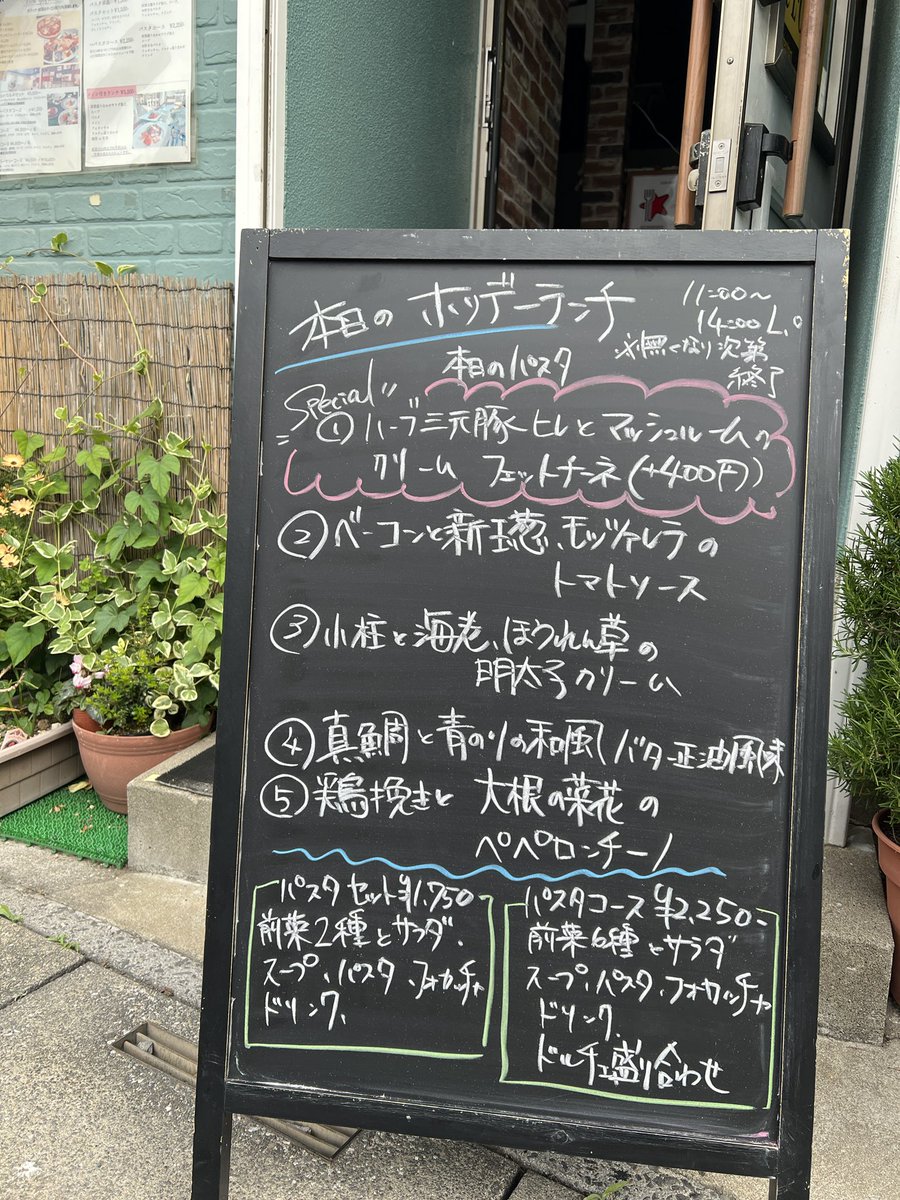 本日の ホリデーランチ
11:00〜
14:00 L.O
※無くなり次第
終了
本日のパスタ
Special
① ハーブ三元豚ヒレとマッシュルームの
クリーム フェットチーネ(+400円)
② ベーコンと新玉葱、モッツァレラの
トマトソース
③ 小柱と海老、ほうれん草の
明太子クリーム
④ 真鯛と青のりの和風バター正油風味
⑤ 鶏挽きと 大根の菜花の
ペペロンチーノ
パスタセット ¥1,750
前菜2種とサラダ、
スープ、パスタ、フォカッチャ
ドリンク、
パスタコース ¥2,250-
前菜6種とサラダ
スープ、パスタ、フォカッチャ
ドリンク、
ドルチェ盛り合わせ